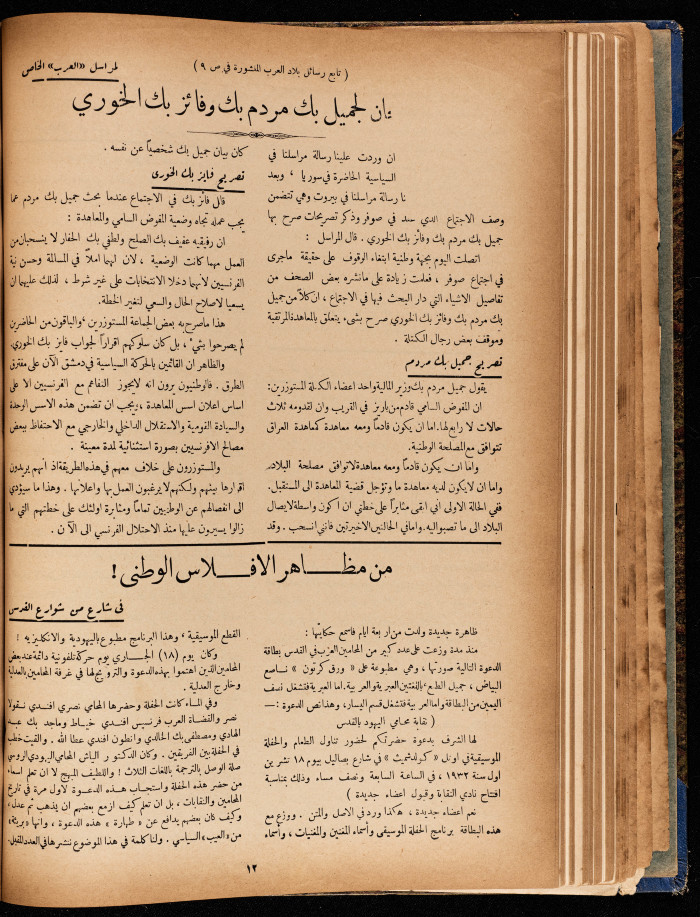 ( تابع رسائل بلاد العرب المنشورة في ص ٩ )
لمراسل «العرب» الخاص
ـان لجميل بك مردم بك وفائز بك الخوري
ان وردت علينا رسالة مراسلنا في
السياسية الحاضرة في سوريا ، وبعد
نا رسالة مراسلنا في بيروت وهي تتضمن
وصف الاجتماع الذي عقد في صوفر وذكر تصريحات صرح بها
جميل بك مردم بك وفائز بك الخوري . قال المراسل :
اتصلت اليوم بجهة وطنية ابتغاء الوقوف على حقيقة ماجرى
في اجتماع صوفر ، فعلمت زيادة على مانشره بعض الصحف من
تفاصيل الاشياء التي دار البحث فيها في الاجتماع ، ان كلاً من جميل
بك مردم بك وفائز بك الخوري صرح بشيء يتعلق بالمعاهدة المرتقبة
وموقف بعض رجال الكتلة .
تصريح جميل بك مردم
يقول جميل مردم بك وزير المالية واحد اعضاء الكتلة المستوزرين:
ان المفوض السامي قادم من باريز في القريب وان لقدومه ثلاث
حالات لا رابع لها. اما ان يكون قادماً ومعه معاهدة كمعاهدة العراق
تتوافق مع المصلحة الوطنية.
واما ان يكون قادماً ومعه معاهدة لاتوافق مصلحة البلاد.
واما ان لايكون لديه معاهدة ما وتؤجل قضية المعاهدة الى المستقبل.
ففي الحالة الاولى اني ابقى مثابراً على خطتي ان اكون واسطة لايصال
البلاد الى ما تصبو اليه. واما في الحالتين الاخيرتين فانني انسحب . وقد
كان بيان جميل بك شخصياً عن نفسه .
تصريح فايز بك الخوري
قال فائز بك في الاجتماع عندما بحث جميل بك مردم عما
يجب عمله تجاه وضعية المفوض السامي والمعاهدة :
ان رفيقيه عفيف بك الصلح ولطفي بك الحفار لا ينسحبان من
العمل مهما كانت الوضعية ، لان لهما املاً في المسالمة وحسن نية
الفرنسيين لانهما دخلا الانتخابات على غير شرط ، لذلك عليهما ان
يسعيا لاصلاح الحال والسعي لتغير الخطة.
هذا ماصرح به بعض الجماعة المستوزرين ، والباقون من الحاضرين
لم يصرحوا بشيء ، بل كان سلوكهم اقراراً لجواب فايز بك الخوري.
والظاهر ان القائمين بالحركة السياسية في دمشق الآن على مفترق
الطرق . فالوطنيون يرون انه لايجوز التفاهم مع الفرنسيين الا على
اساس اعلان اسس المعاهدة ، ويجب ان تضمن هذه الاسس الوحدة
والسيادة القومية والاستقلال الداخلي والخارجي مع الاحتفاظ ببعض
مصالح الافرنسيين بصورة استثنائية لمدة معينة .
والمستوزرون على خلاف معهم في هذه الطريقة اذ انهم يريدون
اقرارها بينهم ولكنهم لا يرغبون العمل بها واعلانها . وهذا ما سيؤدي
الى انفصالهم عن الوطنيين تماماً ومثابرة اولئك على خطتهم التي ما
زالوا يسيرون عليها منذ الاحتلال الفرنسي الى الآن .
من مظـاهر الافـلاس الوطني !
في شارع من شوارع القدس
ظاهرة جديدة ولدت من اربعة ايام فاسمع حكايتها :
منذ مدة وزعت على عدد كبير من المحامين العرب في القدس بطاقة
الدعوة التالية صورتها ، وهي مطبوعة على « ورق كرتون » ناصع
البياض ، جميل الطبع ، باللغتين العبرية والعربية. اما العبرية فتشغل نصف
اليمين من البطاقة واما العربية فتشغل قسم اليسار، وهذا نص الدعوة :—
( نقابة محامي اليهود بالقدس
لها الشرف بدعوة حضرتكم لحضور تناول الطعام والحفلة
الموسيقية في اوتل « كولدشميت » في شارع بصاليل بيوم ١٨ تشرين
اول سنة ١٩٣٢ ، في الساعة السابعة ونصف مساء وذلك بمناسبة
افتتاح نادي النقابة وقبول اعضاء جديدة )
نعم اعضاء جديدة ، هكذا ورد في الاصل والمتن . ووزع مع
هذه البطاقة برنامج الحفلة الموسيقي وأسماء المغنين والمغنيات ، وأسماء
القطع الموسيقية ، وهذا البرنامج مطبوع باليهودية والانكليزية !
وكان يوم (١٨) الجـاري يوم حركة تلفونية دائمة عند بعض
المحامين الذين اهتموا بهذه الدعوة والترويج لها في غرفة المحامين بالعدلية
وخارج العدلية .
وفي المساء كانت الحفلة وحضرها المحامي نصري افندي نقولا
نصر والقضاة العرب فرنسيس افندي خياط وماجد بك عبد
الهادي ومصطفى بك الخالدي وانطون افندي عطا الله . والقيت خطب
في الحفلة بين الفريقين . وكان الدكتور الياش المحامي اليهودي الروسي
صلة الوصل بالترجمة باللغات الثلاث ! واللطيف المبهج لا ان تعلم اسماء
من حضر هذه الحفلة واستجاب هذه الدعوة لاول مرة في تاريخ
المحامين والنقابات ، بل ان تعلم كيف ازمع بعضهم ان يذهب ثم عدل،
وكيف كان بعضهم يدافع عن « طهارة » هذه الدعوة ، وانها «بريئة»
من «العيب» السياسي . ولنا كلمة في هذا الموضوع ننشرها في العدد المقبل.
١٢